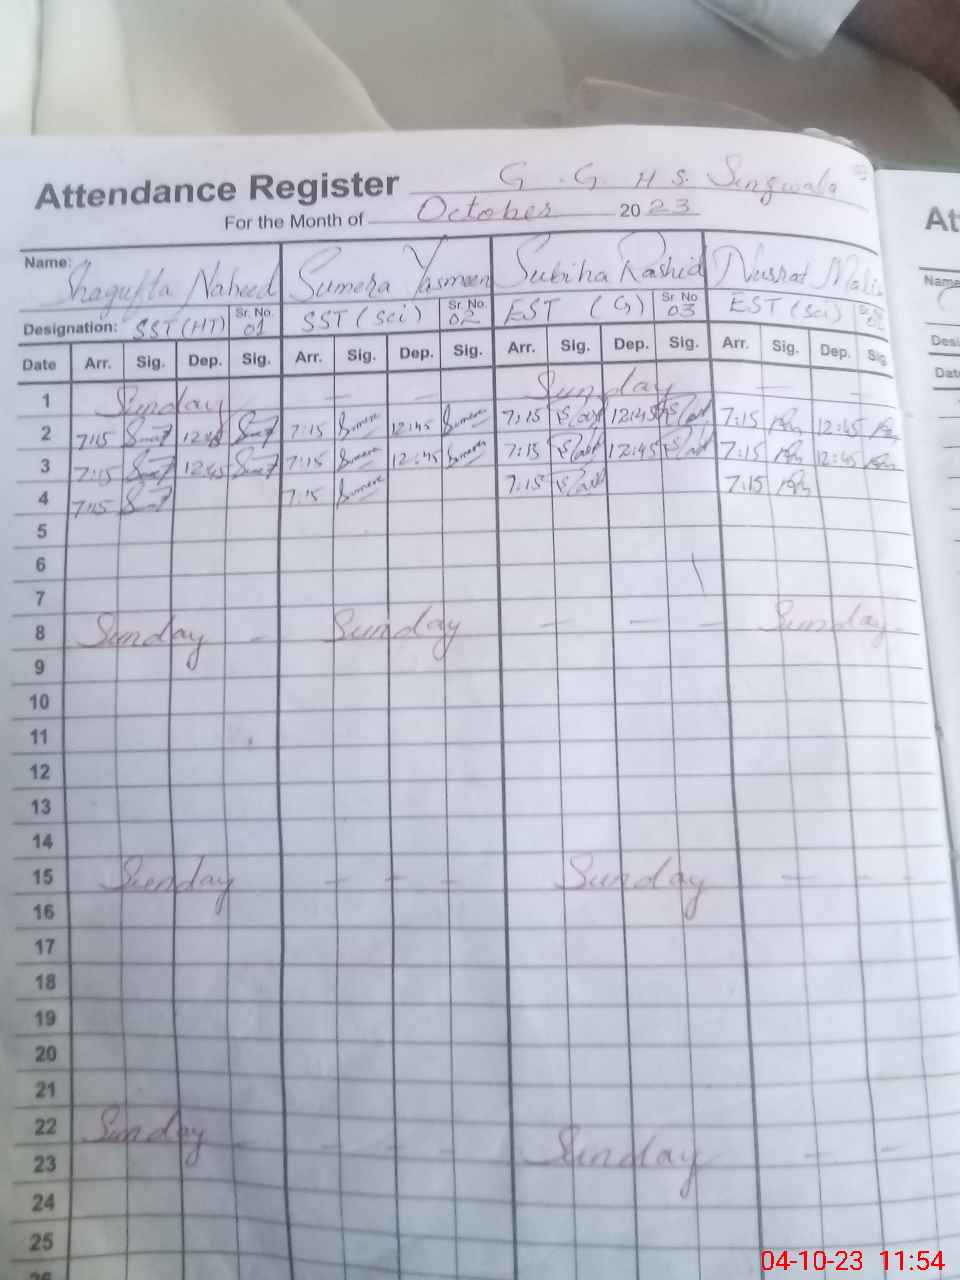 Attendance Register G. G. H S. Singwala
For the Month of October 2023
Name: Shagufta Naheed Sumera Yasmeen Subiha Rashid Nusrat Malik
Designation: SST (HT) Sr. No. 01 SST (Sci) Sr. No. 02 EST (G) Sr. No 03 EST (Sci)
Date Arr. Sig. Dep. Sig. Arr. Sig. Dep. Sig. Arr. Sig. Dep. Sig. Arr. Sig. Dep. Sig
1 Sunday — — Sunday — —
2 7:15 12:45 7:15 Sumera 12:45 Sumera 7:15 12:45 7:15 12:45
3 7:15 12:45 7:15 Sumera 12:45 Sumera 7:15 12:45 7:15 12:45
4 7:15 7:15 Sumera 7:15 7:15
5
6
7
8 Sunday — Sunday — — — Sunday
9
10
11
12
13
14
15 Sunday — — — Sunday — — —
16
17
18
19
20
21
22 Sunday — — — — Sunday — —
23
24
25
26
At
Name
Desi
Dat
04-10-23 11:54